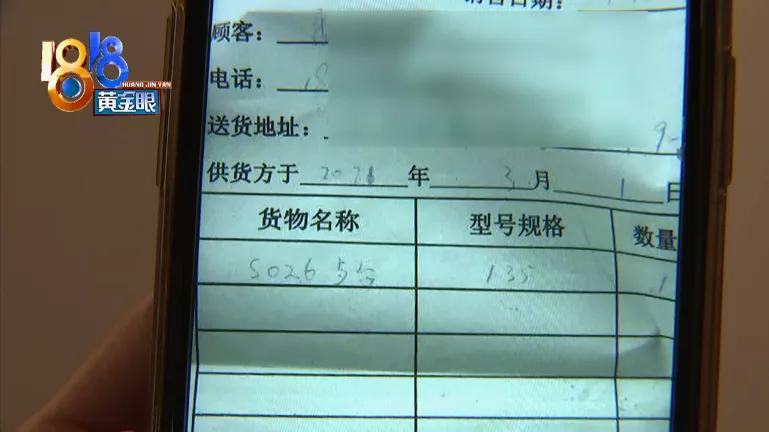 1818
HUANG JIN YAN
黄金眼
销售日期：
顾客：
电话：
送货地址： 9-
供货方于 2021 年 3 月 1 日
货物名称 型号规格 数量
5026 135 1